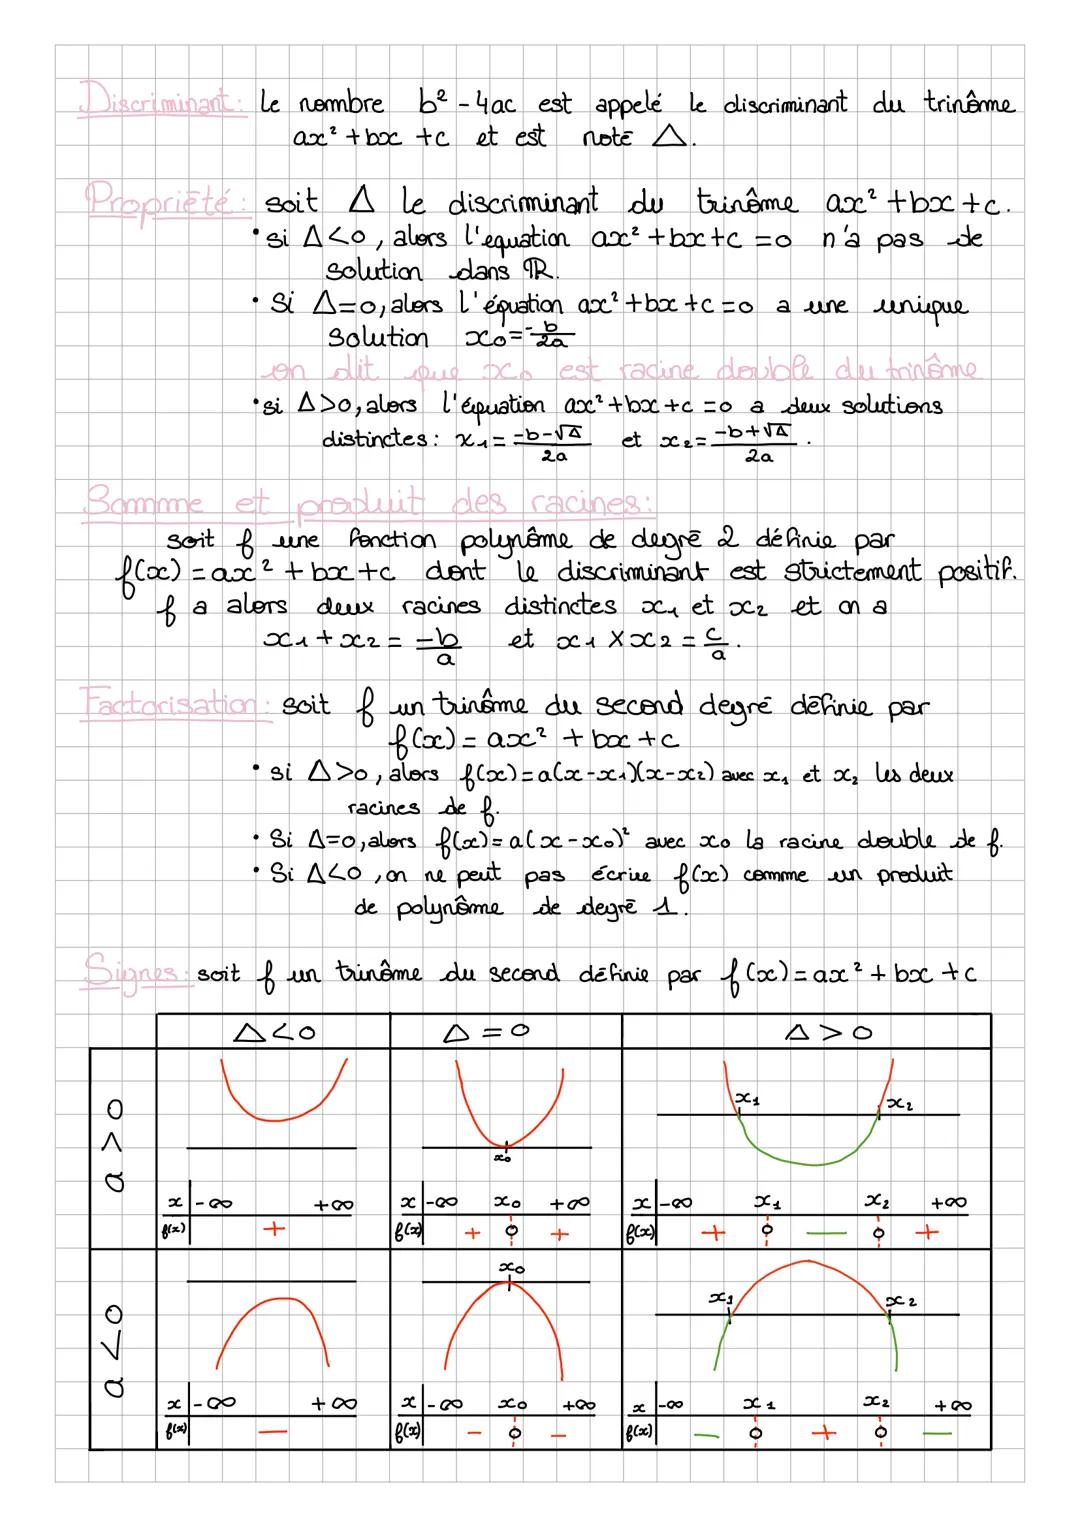 Discriminant: Le nombre b² - 4ac est appelé le discriminant du trinôme
ax² + bx + c et est noté Δ.
Propriété: soit Δ le discriminant du trinôme ax² + bx + c.
• si Δ<0, alors l'equation ax² + bx + c = 0 n'a pas de
solution dans ℝ.
• Si Δ=0, alors l'équation ax² + bx + c = 0 a une unique
solution x₀ = -b/2a
on dit que x₀ est racine double du trinôme
• si Δ>0, alors l'équation ax² + bx + c = 0 a deux solutions
distinctes: x₁ = (-b-√Δ)/2a et x₂ = (-b+√Δ)/2a .
Somme et produit des racines:
soit f une fonction polynôme de degré 2 définie par
f(x) = ax² + bx + c dont le discriminant est strictement positif.
f a alors deux racines distinctes x₁ et x₂ et on a
x₁ + x₂ = -b/a et x₁ × x₂ = c/a .
Factorisation: soit f un trinôme du second degré définie par
f(x) = ax² + bx + c
• si Δ>0, alors f(x) = a(x-x₁)(x-x₂) avec x₁ et x₂ les deux
racines de f.
• Si Δ=0, alors f(x) = a(x-x₀)² avec x₀ la racine double de f.
• Si Δ<0, on ne peut pas écrire f(x) comme un produit
de polynôme de degré 1.
Signes: soit f un trinôme du second définie par f(x) = ax² + bx + c
Δ<0 Δ = 0 Δ > 0
a > 0
x₁ x₂
x₀
x -∞ +∞ x -∞ x₀ +∞ x -∞ x₁ x₂ +∞
f(x) + f(x) + 0 + f(x) + 0 - 0 +
a < 0
x₀
x₁ x₂
x -∞ +∞ x -∞ x₀ +∞ x -∞ x₁ x₂ +∞
f(x) - f(x) - 0 - f(x) - 0 + 0 -